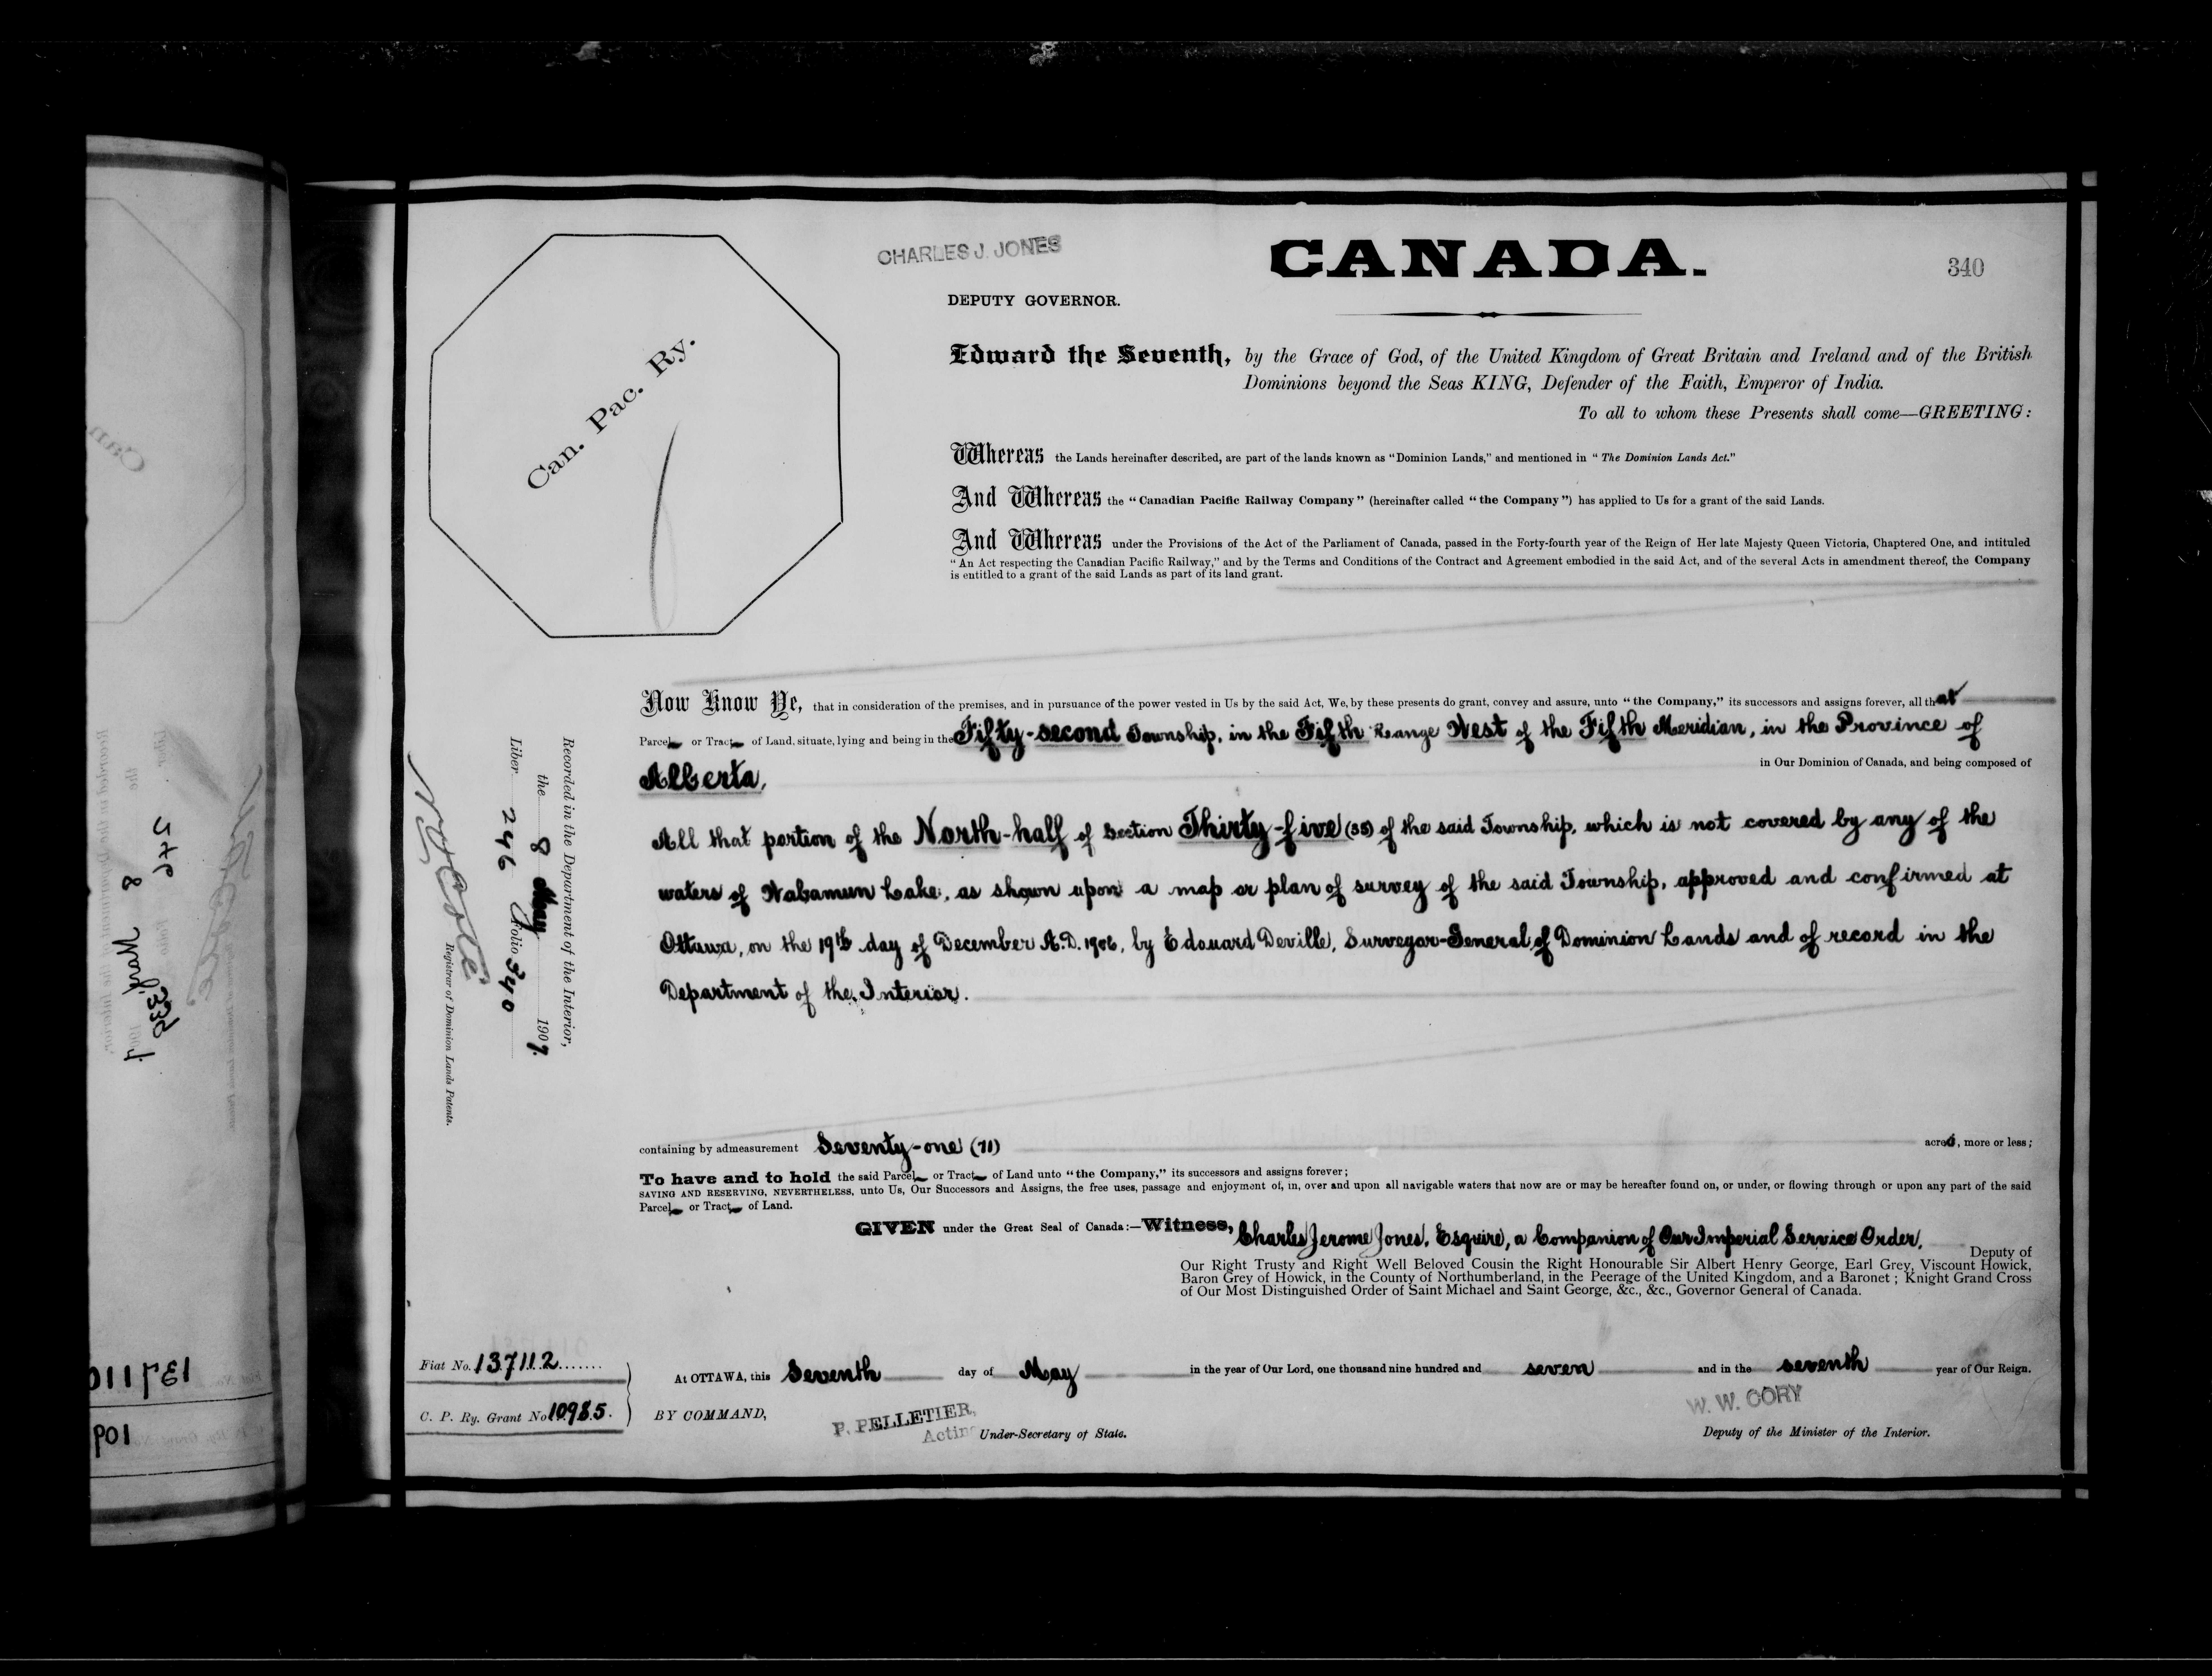 CHARLES J. JONES
CANADA.
340
DEPUTY GOVERNOR.
Can. Pac. Ry.
Edward the Seventh, by the Grace of God, of the United Kingdom of Great Britain and Ireland and of the British
Dominions beyond the Seas KING, Defender of the Faith, Emperor of India.
To all to whom these Presents shall come—GREETING:
Whereas the Lands hereinafter described, are part of the lands known as "Dominion Lands," and mentioned in "The Dominion Lands Act."
And Whereas the "Canadian Pacific Railway Company" (hereinafter called "the Company") has applied to Us for a grant of the said Lands.
And Whereas under the Provisions of the Act of the Parliament of Canada, passed in the Forty-fourth year of the Reign of Her late Majesty Queen Victoria, Chaptered One, and intituled
"An Act respecting the Canadian Pacific Railway," and by the Terms and Conditions of the Contract and Agreement embodied in the said Act, and of the several Acts in amendment thereof, the Company
is entitled to a grant of the said Lands as part of its land grant.
Now Know Ye, that in consideration of the premises, and in pursuance of the power vested in Us by the said Act, We, by these presents do grant, convey and assure, unto "the Company," its successors and assigns forever, all that
Parcel or Tract of Land, situate, lying and being in the Fifty-second Township, in the Fifth Range West of the Fifth Meridian, in the Province of
Alberta, in Our Dominion of Canada, and being composed of
All that portion of the North-half of Section Thirty-five (35) of the said Township, which is not covered by any of the
waters of Wabamun Lake, as shown upon a map or plan of survey of the said Township, approved and confirmed at
Ottawa, on the 19th day of December A.D. 1906, by Edouard Deville, Surveyor-General of Dominion Lands and of record in the
Department of the Interior.
containing by admeasurement Seventy-one (71) acres, more or less;
To have and to hold the said Parcel or Tract of Land unto "the Company," its successors and assigns forever;
SAVING AND RESERVING, NEVERTHELESS, unto Us, Our Successors and Assigns, the free uses, passage and enjoyment of, in, over and upon all navigable waters that now are or may be hereafter found on, or under, or flowing through or upon any part of the said
Parcel or Tract of Land.
GIVEN under the Great Seal of Canada:—Witness, Charles Jerome Jones, Esquire, a Companion of Our Imperial Service Order,
Deputy of
Our Right Trusty and Right Well Beloved Cousin the Right Honourable Sir Albert Henry George, Earl Grey, Viscount Howick,
Baron Grey of Howick, in the County of Northumberland, in the Peerage of the United Kingdom, and a Baronet; Knight Grand Cross
of Our Most Distinguished Order of Saint Michael and Saint George, &c., &c., Governor General of Canada.
At OTTAWA, this Seventh day of May in the year of Our Lord, one thousand nine hundred and seven and in the seventh year of Our Reign.
BY COMMAND,
P. PELLETIER,
Acting Under-Secretary of State.
W. W. CORY
Deputy of the Minister of the Interior.
Fiat No. 137112
C. P. Ry. Grant No 10985.
Recorded in the Department of the Interior,
the 8 May 1907.
Liber 246 Folio 340
Registrar of Dominion Lands Patents.